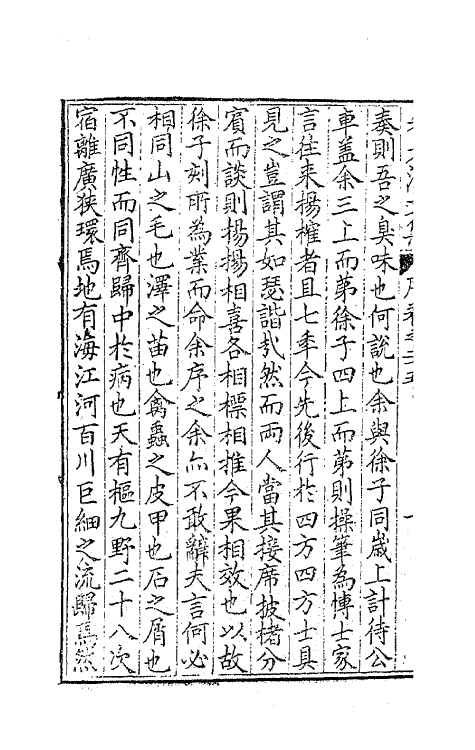 奏則吾之臭味也何說也余與徐子同歲上計待公
車盖余三上而第徐子四上而第則操筆為博士家
言往来揚榷者且七年今先後行於四方四方士具
見之豈謂其如瑟諧㢤然而两人當其接席披楮分
賔而談則揚揚相喜各相標相推今果相效也以故
徐子刻所為業而命余序之余亦不敢辭夫言何必
相同山之毛也澤之苗也禽蟲之皮甲也石之屑也
不同性而同齊歸中於病也天有樞九野二十八次
宿離廣狭環焉地有海江河百川巨細之流歸焉然